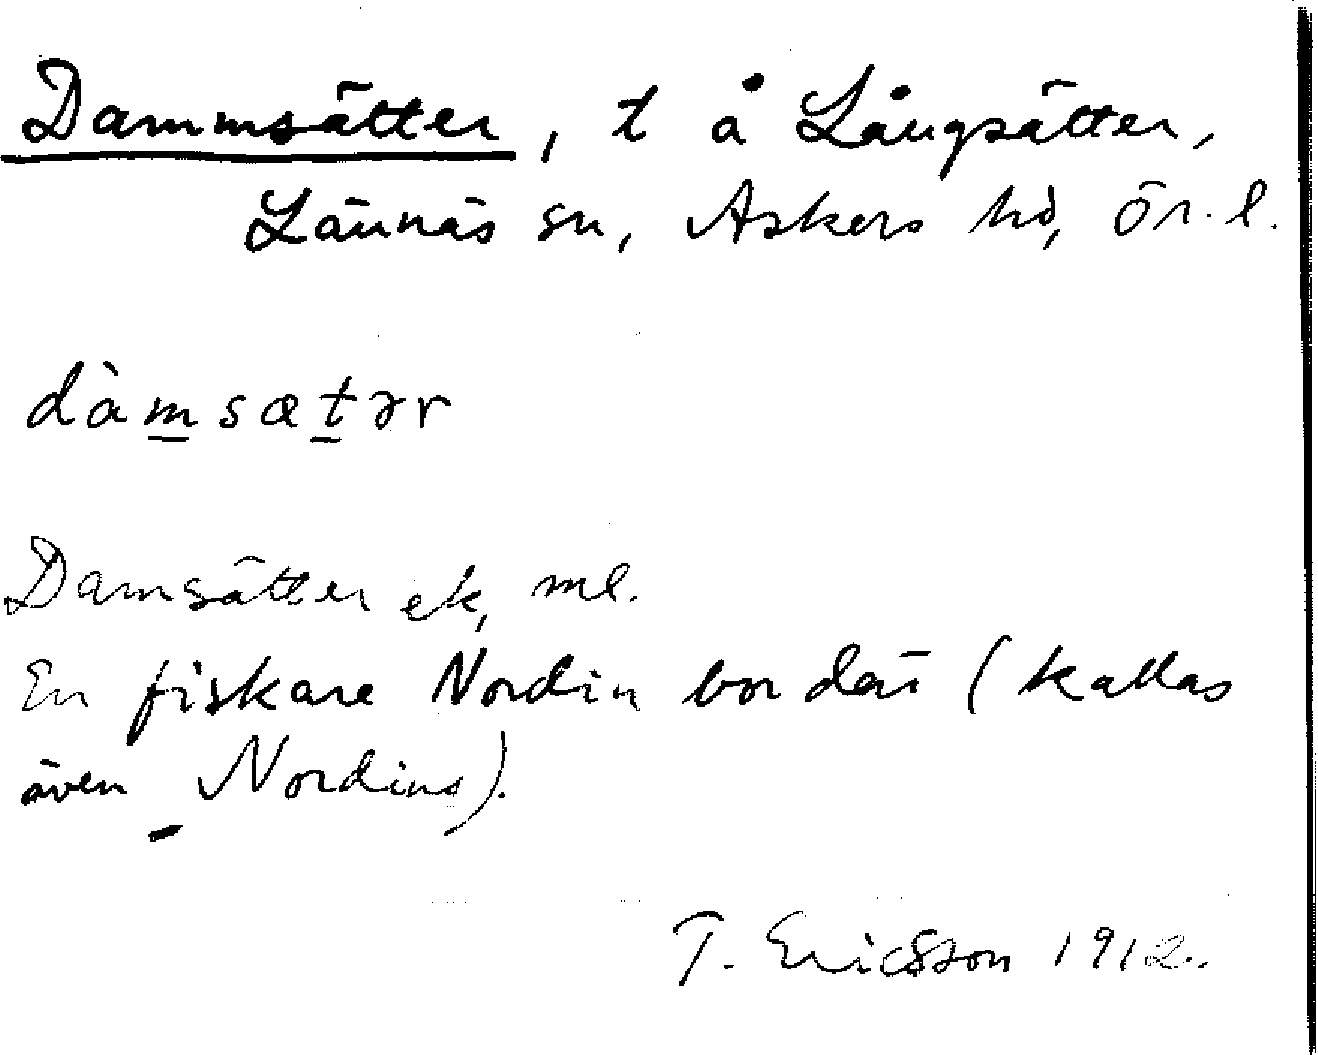 Dammsätter, t å Långsätter,
Lännäs sn, Askers hd, Ör. l.
dàm̲sæt̲ər
Damsätter ek, ml.
En fiskare Nordin bor där (kallas
även Nordins).
T. Ericsson 1912.